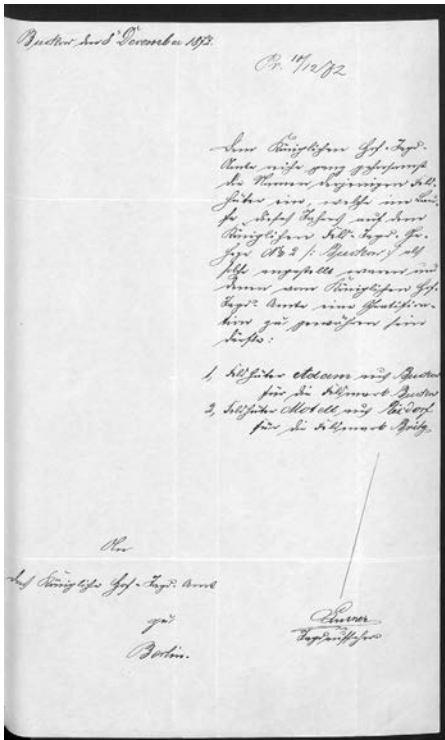 Buckow den 8t December 1872.
Pr. 10/12/72
Dem Königlichen Hof-Jagd-
Amte reiche ganz gehorsamst
die Namen derjenigen Feld-
hüter ein, welche im Lau-
fe dieses Jahres auf dem
Königlichen Feld-Jagd-Ge-
hege No 2 /: Buckow :/ als
solche angestellt waren und
denen vom Königlichen Hof-
Jagd-Amte eine Gratifica-
tion zu gewähren sein
dürfte:
1, Feldhüter Adam aus Buckow
für die Feldmark Buckow
2, Feldhüter Motell aus Rixdorf
für die Feldmark Britz
An
das Königliche Hof-Jagd-Amt
zu
Berlin.
Jagdaufseher